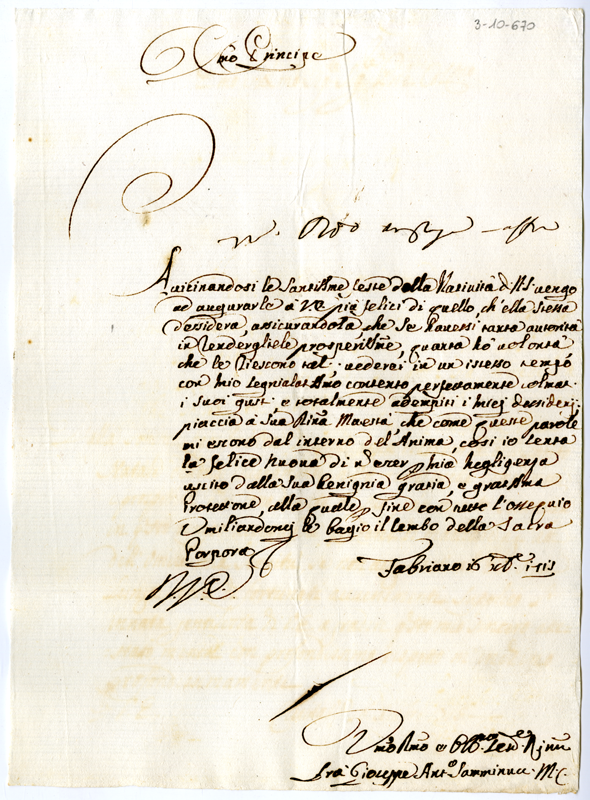 3-10-670
Emo Principe
Avicinandosi le Santissme feste della Natività di N.S. vengo
ad augurarle à V.E. più felici di quello, ch'ella stessa
desidera, assicurandola, che se havessi tanta autorità
in rendergliele prosperissme, quanta hò volontà
che le riescono tali; vederei in un istesso tempo
con mio segnalatissmo contento perfettamente colmati
i suoi gusti, e totalmente adempiti i miei desiderij
piaccia à Sua Divina Maestà, che come queste parole
mi escono dal interno del'Anima, così io senta
la felice nuova di n esser p mia negligenza
uscito dalla Sua benignia gratia, e
Protettione, alla quale p fine con
Umiliandomi le bagio il lembo della Sacra
Porpora
Fabriano 16 Xbre 1713
V. E.
Umo Dmo e
fra Gioseppe Anto Samminucci M.C.